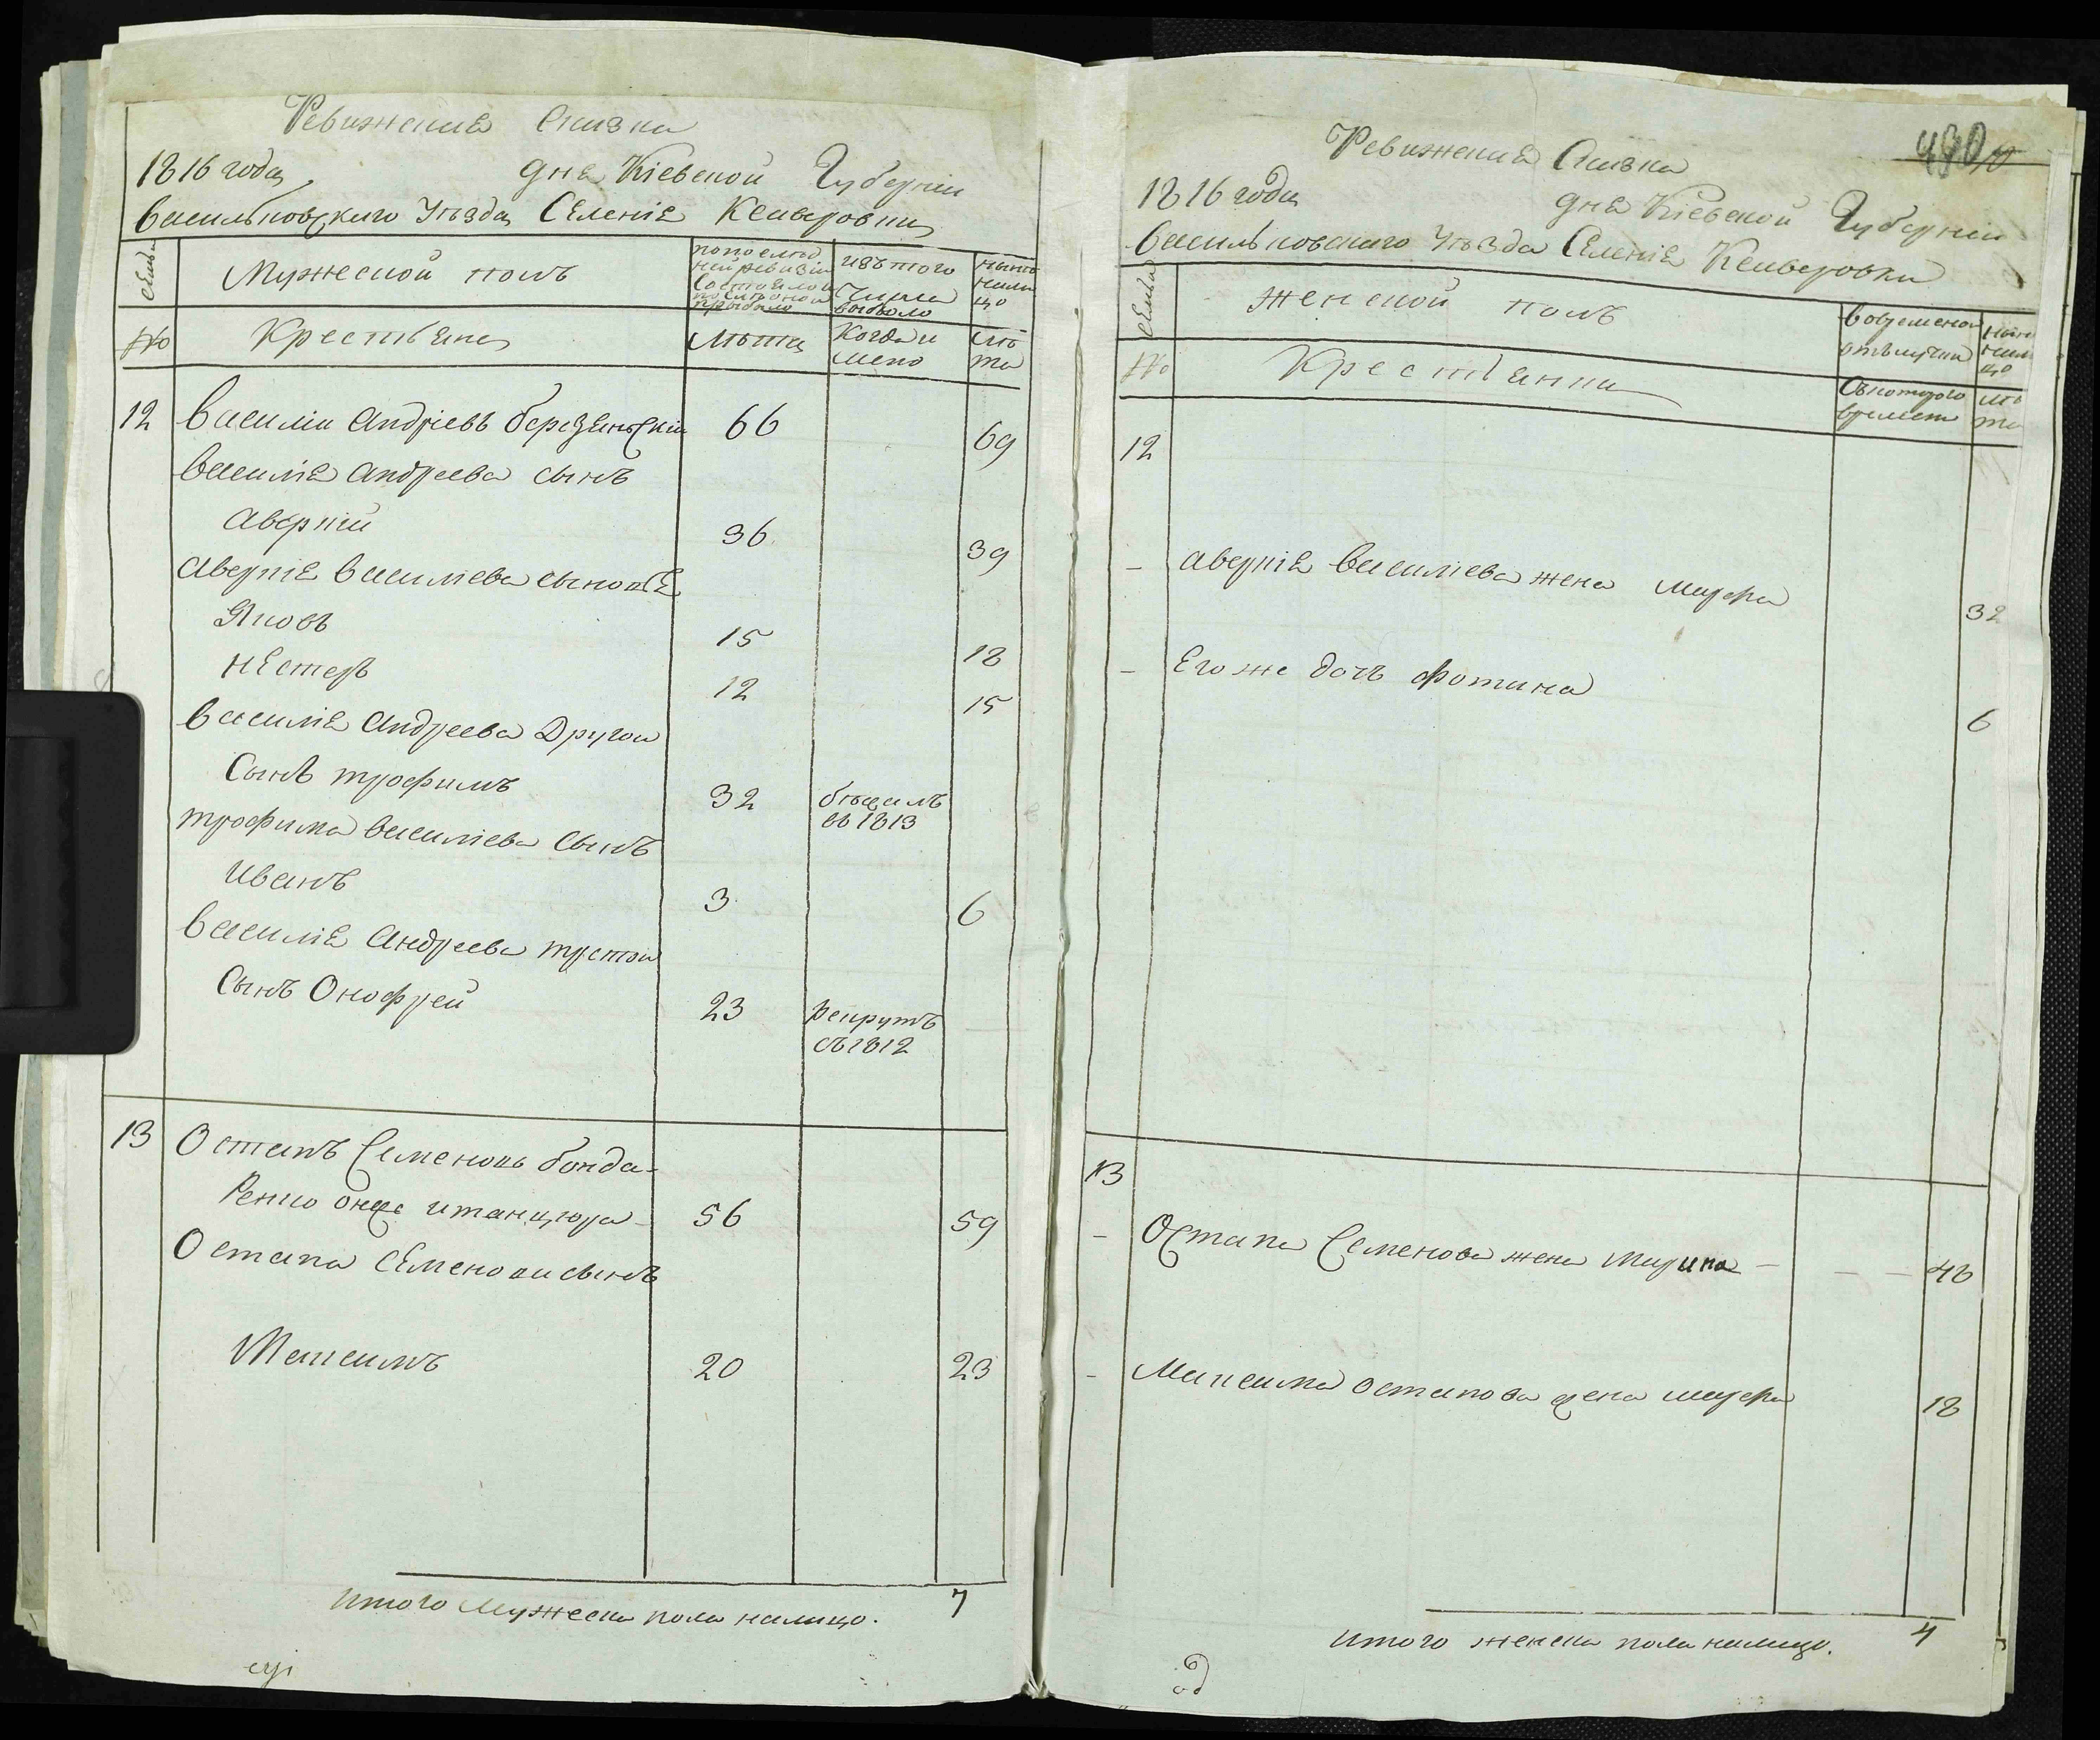 Ревижская Сказка
1816 года дня Кіевской Губерніи
Васильковского Уезда Селеніе Ксаверовки
Семьи
Мужеской полъ
по последней ревизіи состояло и по оной прибыло
изъ того числа выбыло
ныне налицо
№
Крестьяне
Лѣта
Когда и
лѣта
12 Василій Андріевъ Березянскій 66 69
Василіе Андреева сынъ
Аверкій 36 39
Аверкіе Василіева сыновье
Яковъ 15 18
Нестеръ 12 15
Василіе Андреева Другой
Сынъ трофимъ 32 бѣжалъ
въ 1813
трофима Василіева Сынъ
Иванъ 3 6
Василіе Андреева третой
Сынъ Онофрей 23 рекрутъ
съ 1812
13 Остапъ Семеновъ бонда-
ренко онже и танцюра 56 59
Остапа Семенова сынъ
Максимъ 20 23
Итого Мужеска пола налицо. 7
Ревижская Сказка
1816 года дня Кіевской Губерніи
Васильковского Уезда Селеніе Ксаверовки
Семьи
Женской полъ
во временной отълучки
ныне налицо
№
Крестьянки
Съкоторого времени
лѣта
12
- Аверкіе Василіева жена Марфа 32
- Его же дочъ фотина 6
13
- Остапа Семенова жена Марина - - - 48
- Максима Остапова жена марфа 18
Итого женска пола налицо. 4